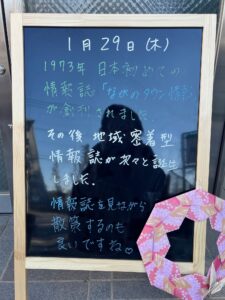 1月29日(木)
1973年 日本初めての
情報誌「ながのタウン情報」
が創刊されました
その後 地域密着型
情報誌が次々と誕生
しました.
情報誌を見ながら
散策するのも
良いですね♡